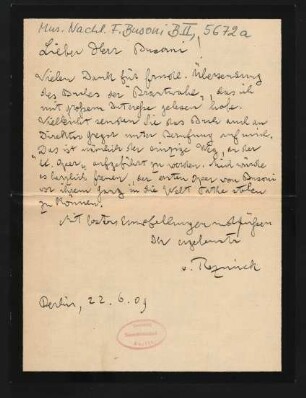 Mus. Nachl. F. Busoni B II, 5672a
Lieber Herr Busoni!
Vielen Dank für freundl. Übersendung
des Buches der Brautwahl, das ich
mit großem Interesse gelesen habe.
Vielleicht senden Sie das Buch auch an
Direktor Gregor unter Berufung auf mich.
Das ist vielleicht der einzige Weg, an der
K. Oper, aufgeführt zu werden. Mich würde
es herzlich freuen, der ersten Oper von Busoni
vor ihrem Gang in die Welt Pathe stehen
zu können.
Mit besten Empfehlungen und Grüßen
Der ergebenste
v. Reznicek
Berlin, 22.6.09